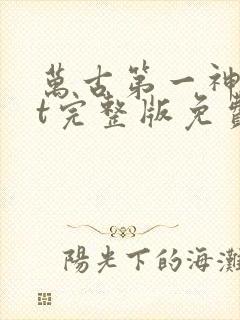 萬古第一神
t完整版免費
陽光下的海灘